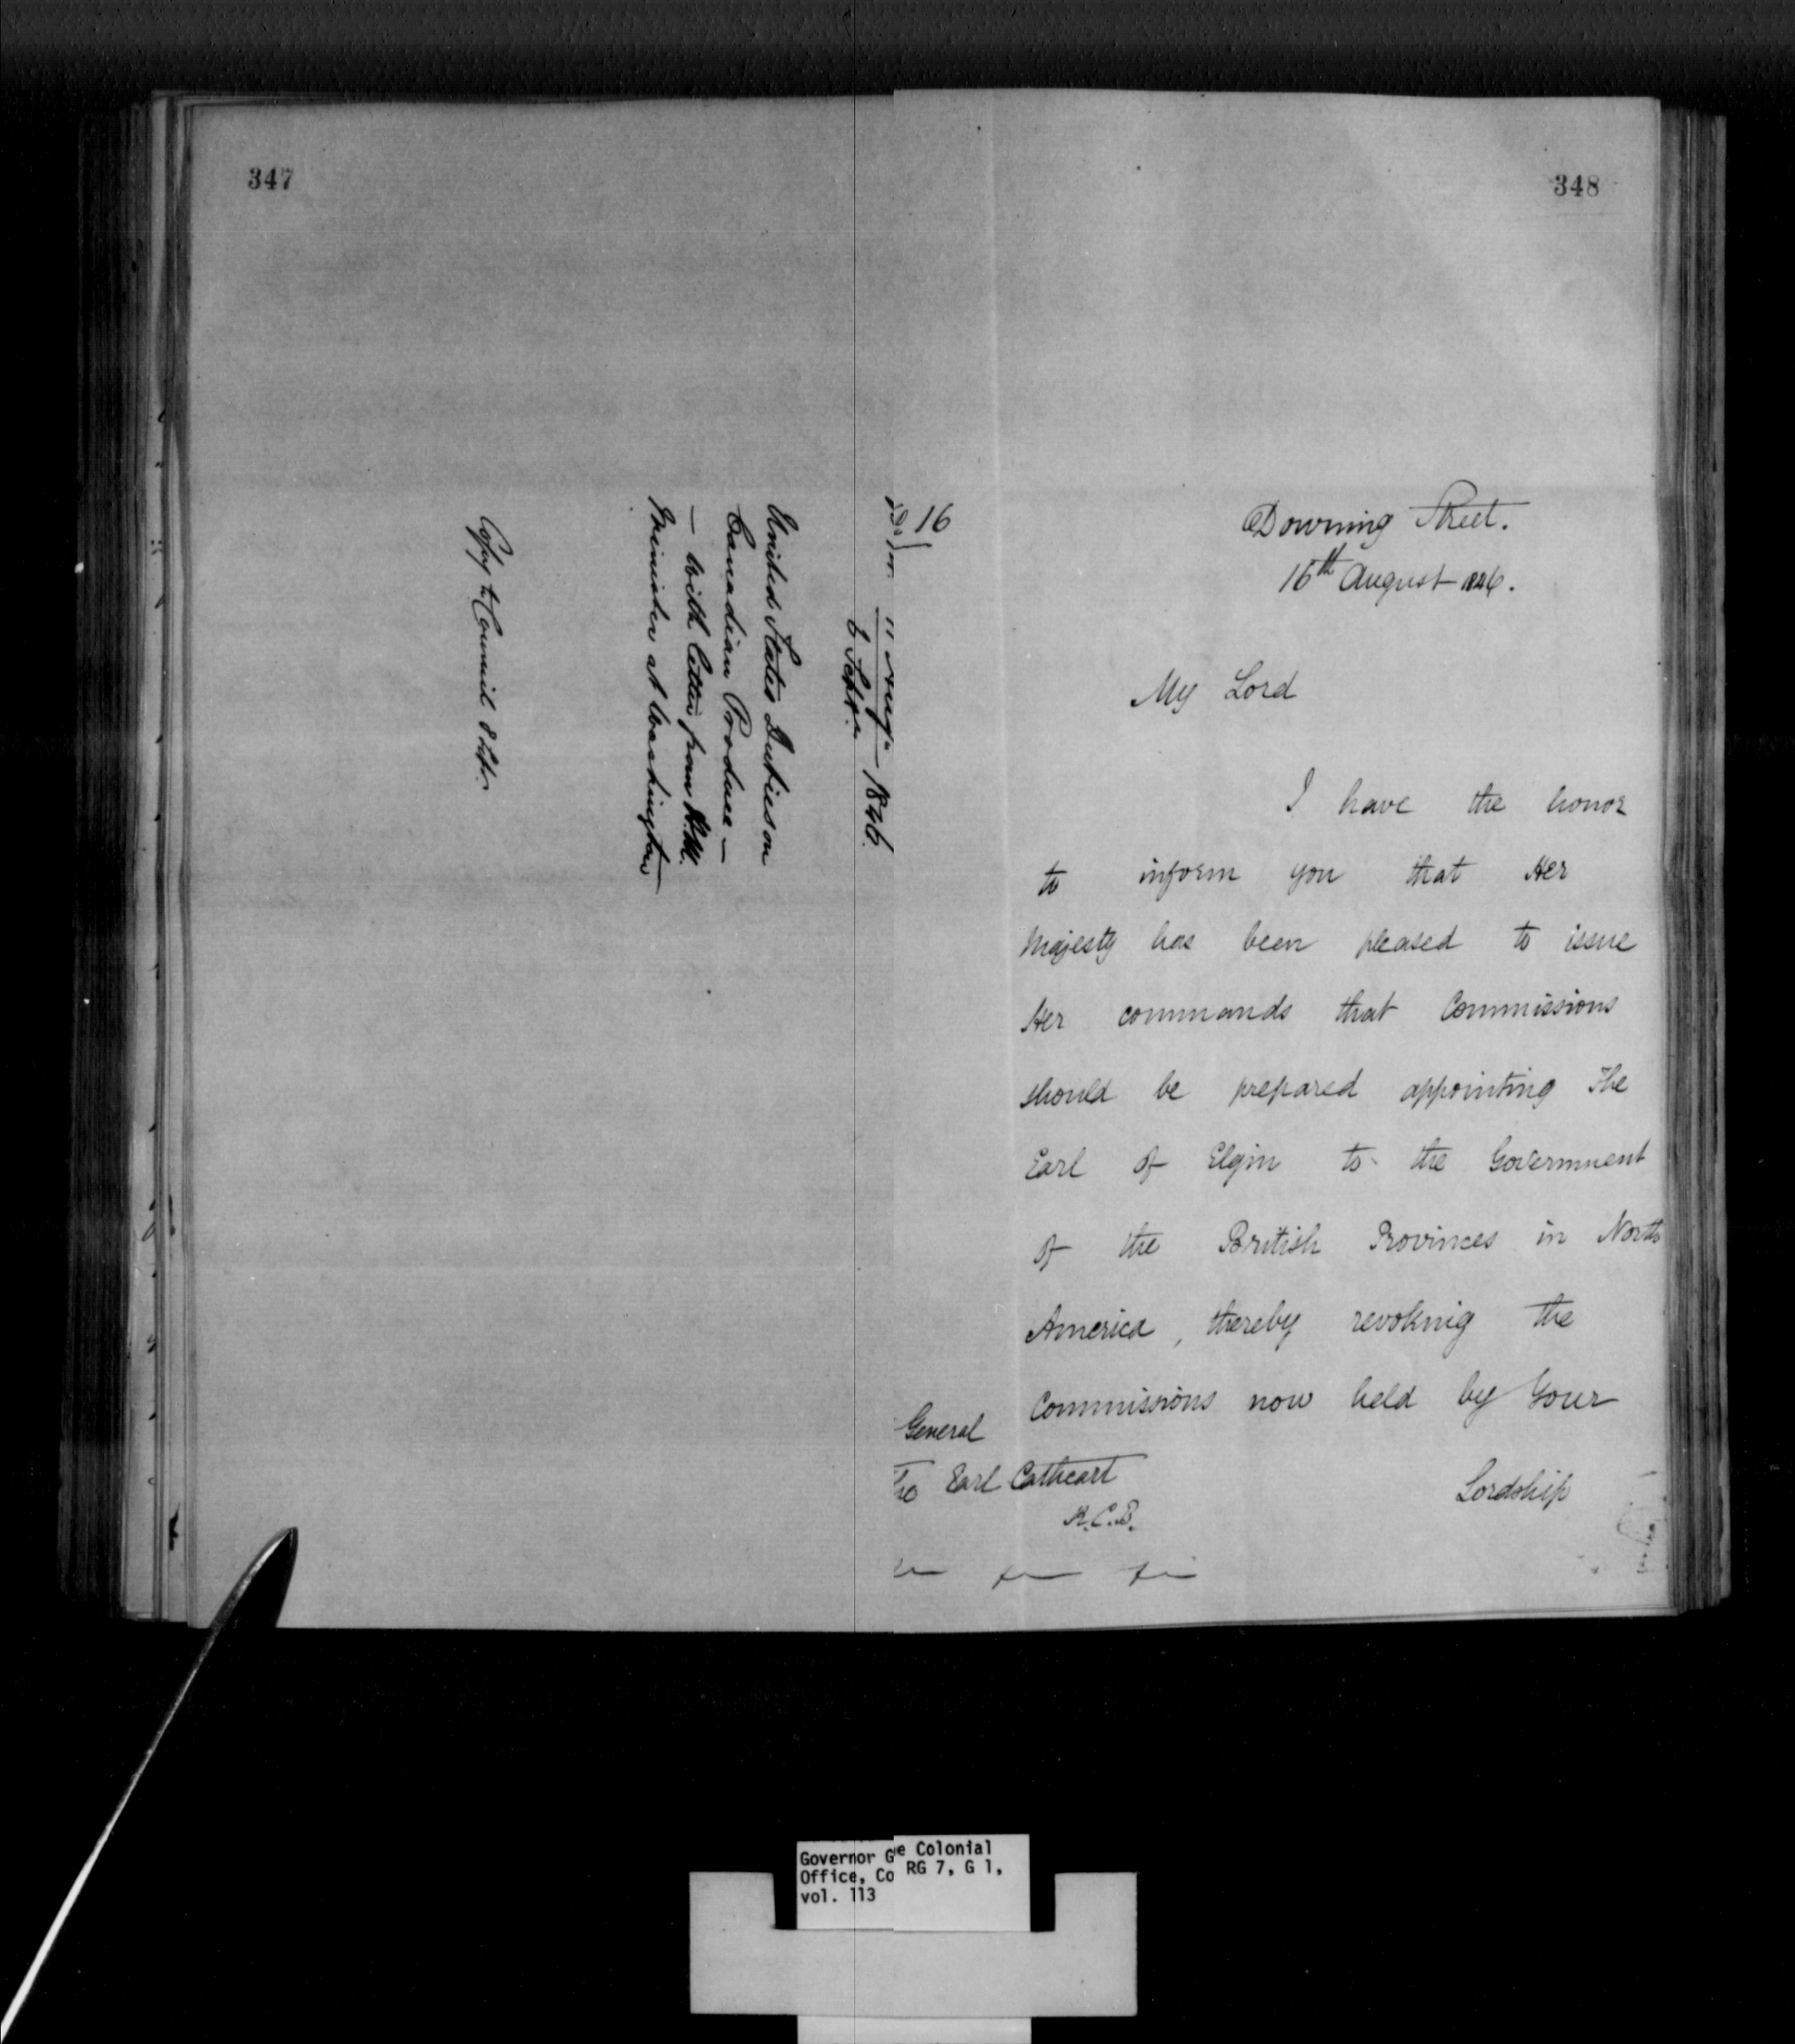 347
11 Augt 1846.
6 Septr.
United States Duties on
Canadian Produce —
— with letter from H.M.
Minister at Washington
Copy to Council 8 Sept.
348
16
Downing Street.
16th August 1846.
My Lord
I have the honor
to inform you that Her
Majesty has been pleased to issue
Her commands that Commissions
should be prepared appointing The
Earl of Elgin to the Government
of the British Provinces in North
America, thereby revoking the
Commissions now held by Your
Lordship
General
The Earl Cathcart
K.C.B.
Governor G e Colonial
Office, Co RG 7, G 1,
vol. 113